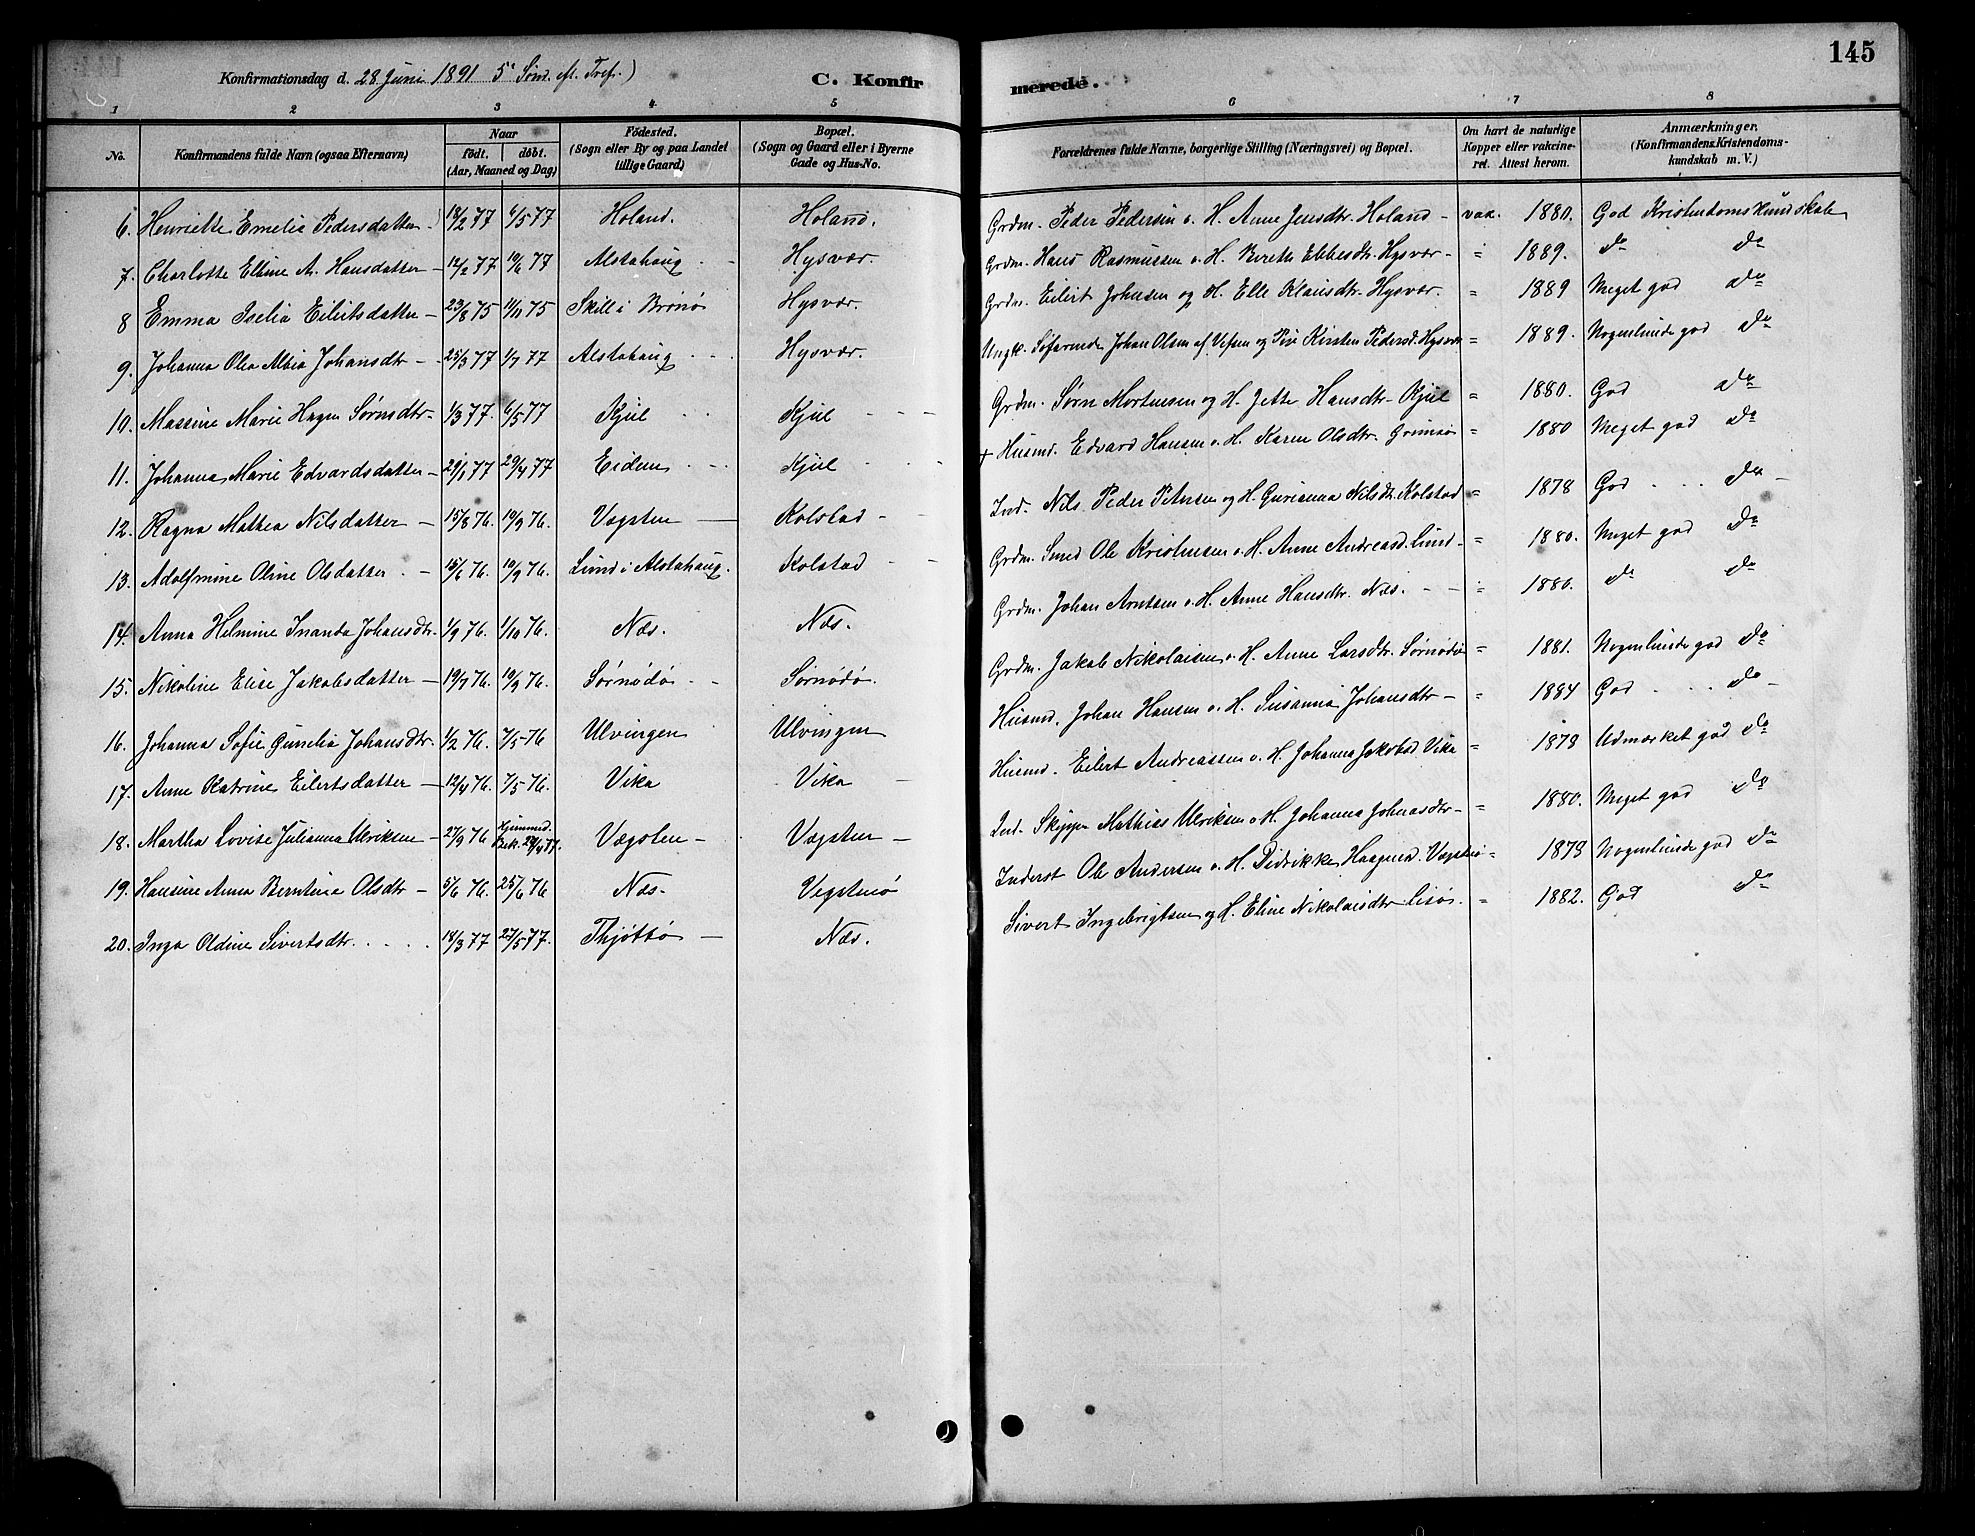 145
Konfirmationsdag d. 28 Juni 1891 5te Sønd. ef. Tref.)
C. Konfirmerede.
1 2 3 4 5 6 7 8
No. | Konfirmandens fulde Navn (ogsaa Efternavn) | Naar født. døbt. (Aar, Maaned og Dag) | Fødested. (Sogn eller By og paa Landet tillige Gaard) | Bopæl. (Sogn og Gaard eller i Byerne Gade og Hus-No. | Forældrenes fulde Navne, borgerlige Stilling (Næringsvei) og Bopæl. | Om havt de naturlige Kopper eller vakcineret. Attest herom. | Anmærkninger. (Konfirmandens Kristendomskundskab m. V.)
6. Henriette Emelie Pedersdatter 18/2 77 6/5 77 Holand. Holand. Grdm. Peder Pedersen o. H. Anne Jensdtr. Holand - vax. 1880. God Kristendomskundskab
7. Charlotte Eline A. Hansdatter - 12/2 77 10/6 77 Alstahaug Hysvær. Grdm. Hans Rasmussen o. H. Berethe Ebbesdtr. Hysvær - " 1889. do do
8 Emma Iselia Eilertsdatter - 23/8 75 1/11 75 Skille i Brønø Hysvær. Grdm. Eilert Johnsen og H. Elle Klausdtr. Hysvær. " 1889 Meget god do
9. Johanna Olea Albia Johansdtr - 25/3 77 1/7 77 Alstahaug Hysvær. Ungk. Søfarende Johan Olsen af Vefsen og Pige Kirsten Pedersd. Hysvær " 1889. Nogenlunde god do
10. Massine Marie Hagen Sørnsdtr - 1/3 77. 6/5 77 Kjul Kjul Grdm. Sørn Mortensen og H. Jette Hansdtr. Kjul " 1880. God do
11. Johanna Marie Edvardsdatter - 29/1 77 29/4 77 Eidem Kjul + Husmd. Edvard Hansen o. H. Karen Olsdtr. Grimsø " 1880 Meget god do
12. Ragna Mathea Nilsdatter - 15/8 76. 10/9 76. Vægsten Kolstad - Ind. Nils Peder Petersen og H. Gurianna Nilsdtr. Kolstad " 1878 God do
13. Adolfmine Oline Olsdatter - 15/6 76. 10/9 76. Lund i Alstahaug. Kolstad Grdm. Smed Ole Kristensen o. H. Anne Andreasd. Lund - " 1880. Meget god do
14. Anna Helmine Inanda Johansdtr. 1/9 76. 1/10 76. Næs. Næs. Grdm. Johan Arntsen o. H. Anne Hansdtr. Næs. - " 1880. do do
15. Nikoline Elise Jakobsdatter - 19/7 76. 10/9 76. Sørnødø Sørnødø. Grdm. Jakob Nikolaisen o. H. Anne Larsdtr. Sørnødø " 1881. Nogenlunde god do
16. Johanna Sofie Gunelia Johansdtr. 1/2 76. 7/5 76 Ulvingen Ulvingen Husmd. Johan Hansen o. H. Susanna Johansdtr - " 1884 God do -
17. Anne Katrine Eilertsdatter - 12/4 76. 7/5 76. Vika Vika Husmd. Eilert Andreassen o. H. Johanna Jakobsd. Vika " 1878 Udmærket god do
18. Martha Lovise Julianna Ulriksen - 27/9 76 Hjemmed. Bek. 29/4 77. Vægsten - Vægsten - Ind. Skipper Mathias Ulriksen o. H. Johanna Johnasdtr - " 1880. Meget god do
19. Hansine Anna Berntine Olsdtr - 5/6 76. 25/6 76 Næs. Vegstenø Inderst Ole Andersen o. H. Didrikke Haagensd. Vegstenø - 1878 Nogenlunde god do
20. Inga Oldine Sivertsdtr. 18/3 77 27/5 77. Thjøttø - Næs. Sivert Ingebrigtsen og H. Eline Nikolaisdtr Lisø. " 1882. God do